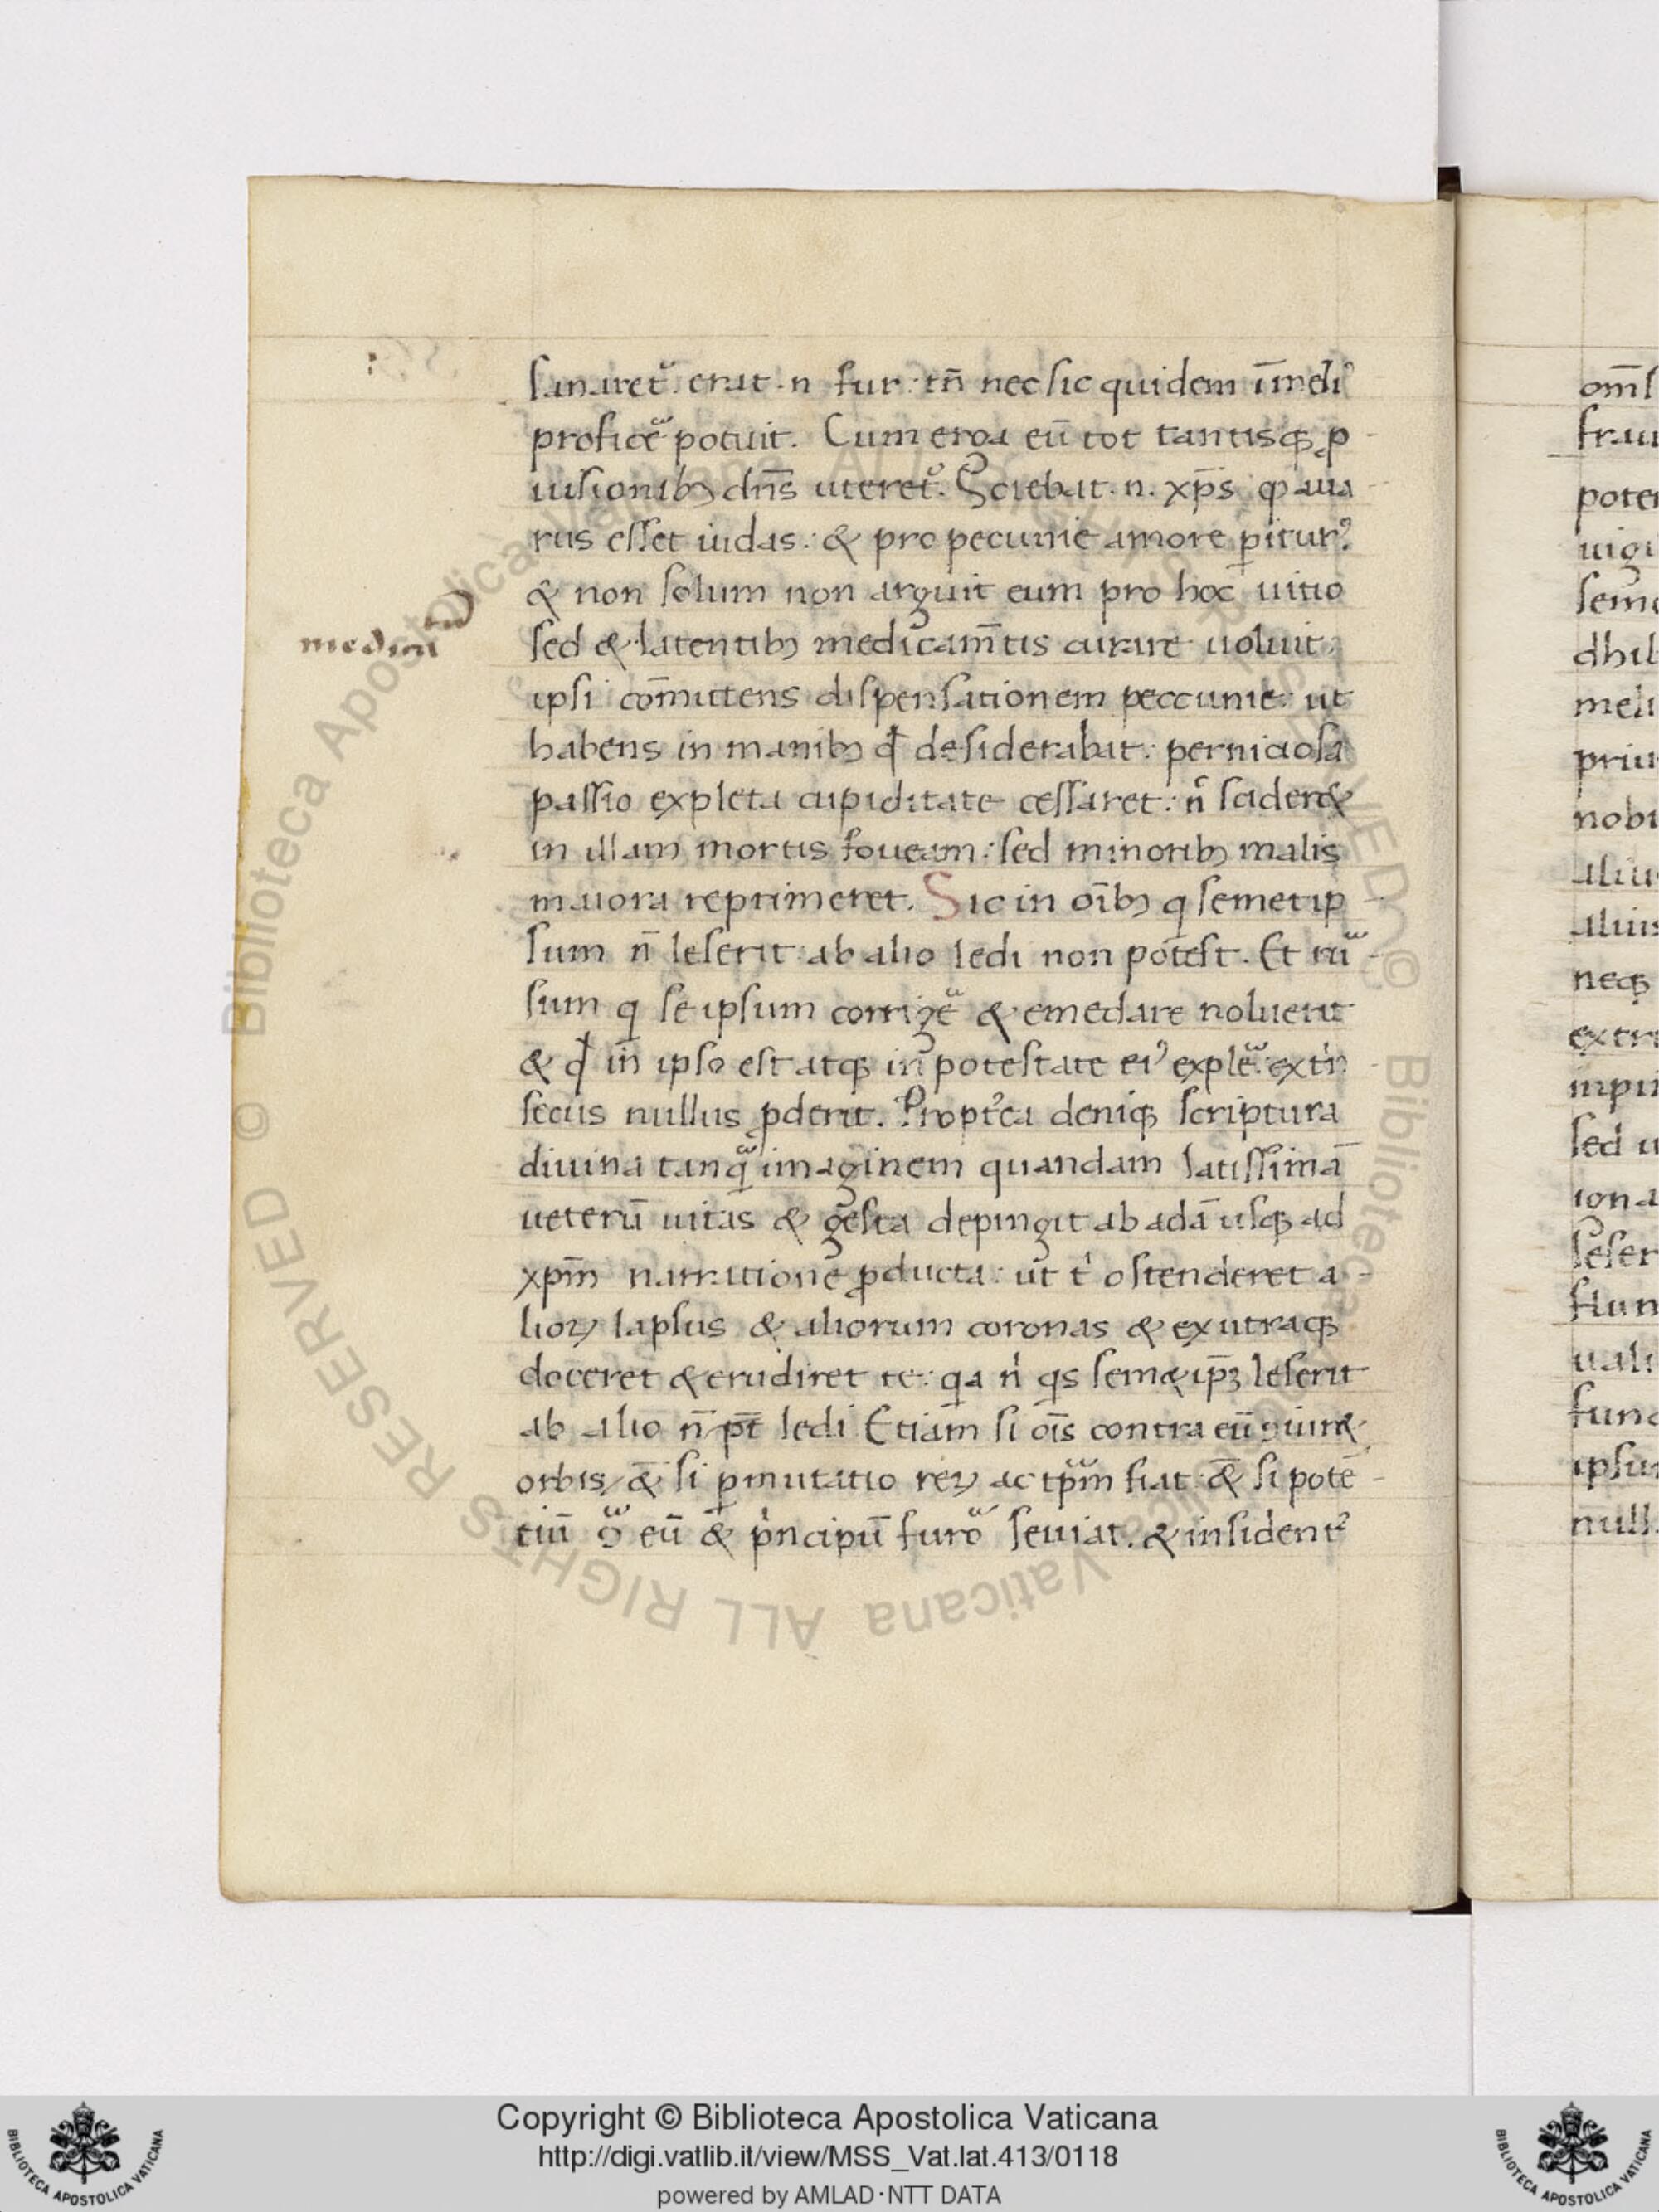 sanaret᷑. erat .n. fur: tn̄ nec sic quidem īmedi
proficē potuit. Cum erga eū tot tantisqꝫ ꝓ
uisionibꝫ dn̄s uteret᷑. Sciebat .n. xp̄s ꝙ aua
rus esset iudas: & pro pecunie amore ꝑiturꝰ
& non solum non arguit eum pro hoc uitio
sed & latentibꝫ medicam̄tis curare uoluit
ipsi com̄ittens dispensationem peccunie: ut
habens in manibꝫ qđ desiderabat: perniciosa
passio expleta cupiditate cessaret: n̄ scider&
in illam mortis foueam: sed minoribꝫ malis
maiora reprimeret. Sic in oībꝫ q semetip
sum n̄ leserit ab alio ledi non potest. Et ru
sum q se ipsum corrigē & emedare noluerit
& qđ in ipso est atqꝫ in potestate eiꝰ explē: extⁱn
secus nullus ꝓderit. Propt᷑ea deniqꝫ scriptura
diuina tanꝙ̄ imaginem quandam latissimā
ueterū uitas & gesta depingit ab adā usqꝫ ad
xpm̄ narratione ꝓducta: ut tⁱ ostenderet a
lioꝝ lapsus & aliorum coronas & ex utraqꝫ
doceret & erudiret te: qa nⁱ qs sem&ip̄ꝫ leserit
ab alio n̄ pt̄ ledi Etiam si oīs contra eū ꝯiur&
orbis, &̄ si ꝑmutatio reꝝ ac tp̄m fiat &̄ si potē
tiū ꝯ̄ eū &̄ pⁱncipū furō seuiat. & insident᷑
medicī
©  Biblioteca Apostolica Vaticana  ALL RIGHTS RESERVED
Copyright © Biblioteca Apostolica Vaticana
http://digi.vatlib.it/view/MSS_Vat.lat.413/0118
powered by AMLAD·NTT DATA
BIBLIOTECA APOSTOLICA VATICANA
BIBLIOTECA APOSTOLICA VATICANA